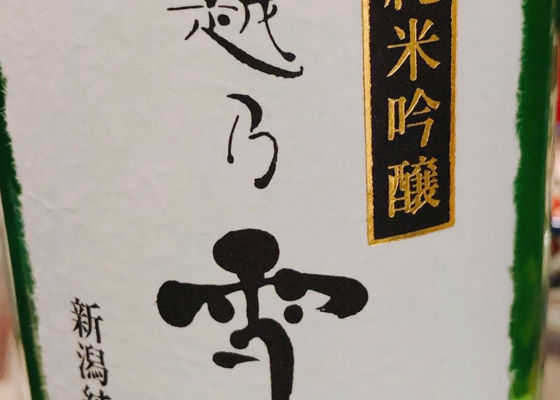 純米吟醸
越乃雪
新潟